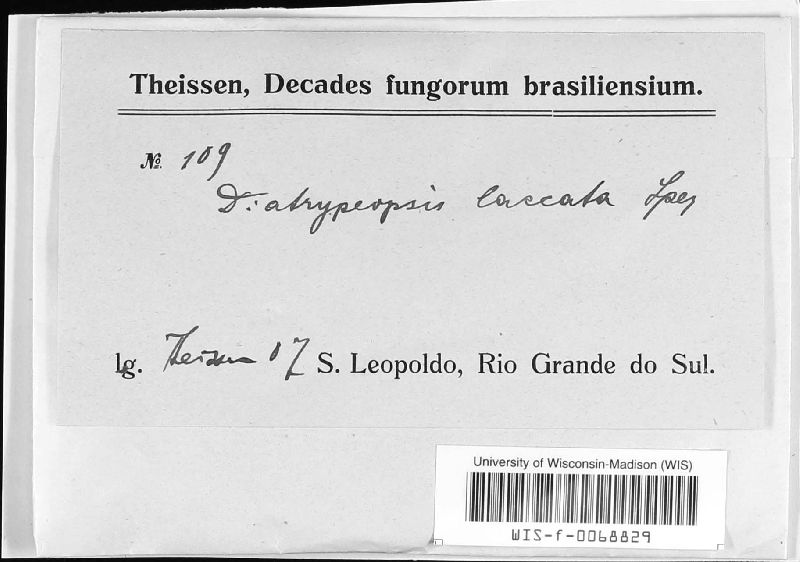 Theissen, Decades fungorum brasiliensium.
№ 109
Diatrypeopsis laccata Speg
lg. Theissen 07 S. Leopoldo, Rio Grande do Sul.
University of Wisconsin-Madison (WIS)
WIS-f-0068829